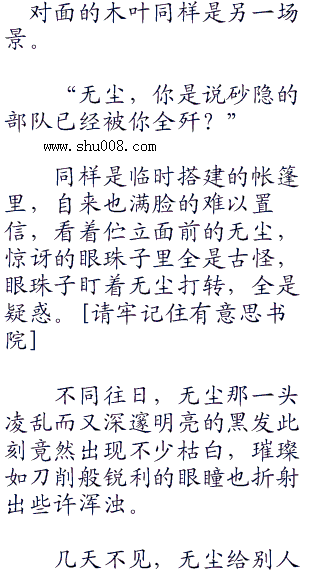 对面的木叶同样是另一场
景。
“无尘，你是说砂隐的
部队已经被你全歼？”
www.shu008.com
同样是临时搭建的帐篷
里，自来也满脸的难以置
信，看着伫立面前的无尘，
惊讶的眼珠子里全是古怪，
眼珠子盯着无尘打转，全是
疑惑。[请牢记住有意思书
院]
不同往日，无尘那一头
凌乱而又深邃明亮的黑发此
刻竟然出现不少枯白，璀璨
如刀削般锐利的眼瞳也折射
出些许浑浊。
几天不见，无尘给别人